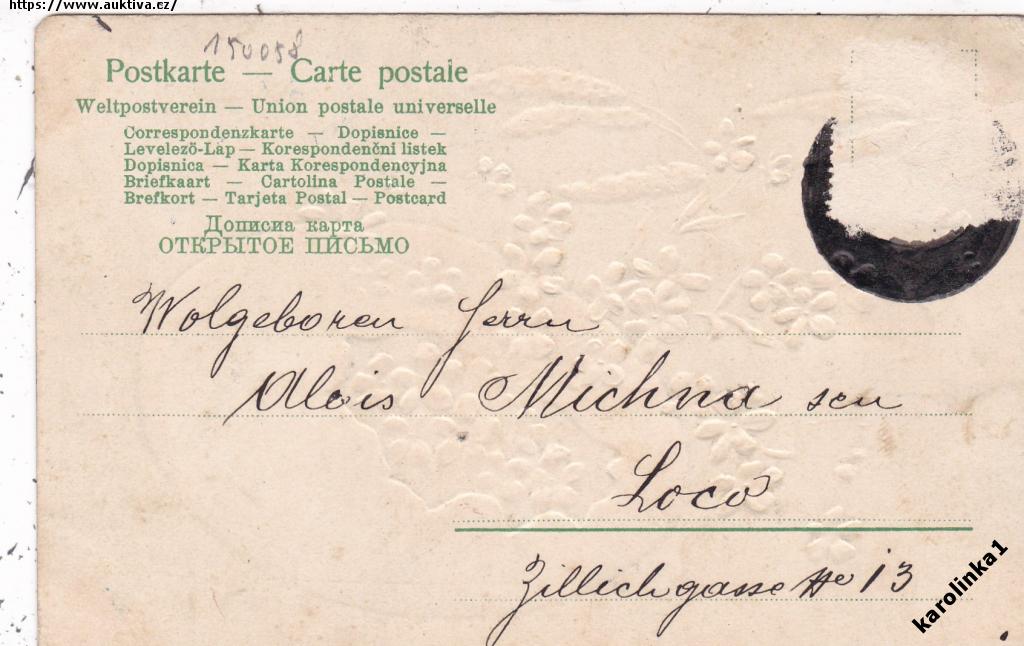 https://www.auktiva.cz/
150058
Postkarte — Carte postale
Weltpostverein — Union postale universelle
Correspondenzkarte — Dopisnice —
Levelező-Lap — Korespondenčni listek
Dopisnica — Karta Korespondencyjna
Briefkaart — Cartolina Postale —
Brefkort — Tarjeta Postal — Postcard
Дописна карта
ОТКРЫТОЕ ПИСЬМО
Wolgeboren Herrn
Alois Michna sen
Loco
Zillichgasse No 13
karolinka1